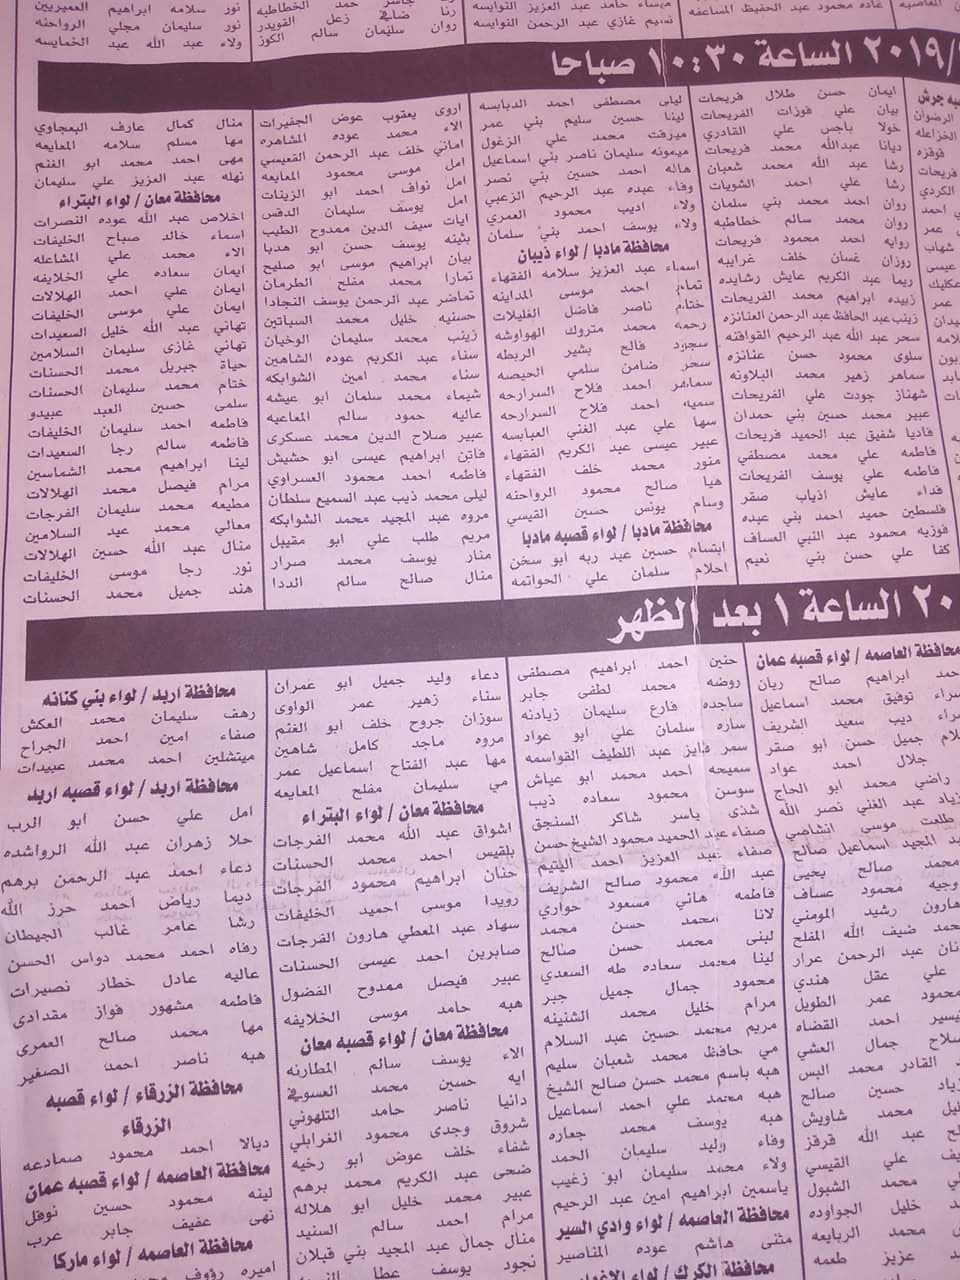 غاده محمود عبد الحفيظ المساعفه
ميساء حامد عبد العزيز النوايسه
نسيم غازي عبد الرحمن النوايسه
حمد الخطاطبه
رنا ضافي زعل القويدر
روان سليمان سالم الكوز
نور سلامه ابراهيم العميريين
نور سليمان مجلي الرواحنه
ولاء عبد الله عبد الخمايسه
٢٠١٩/ الساعة ١٠:٣٠ صباحا
ايمان حسن طلال فريحات
بيان علي فوزات الفريحات
خولا ياجس علي القادري
ديانا عبدالله محمد فريحات
رشا عبد الله محمد شعبان
رشا علي احمد الشويات
روان احمد محمد بني سلمان
روان محمد سالم خطاطبه
روايه احمد محمود فريحات
روزان غسان خلف غرايبه
ريما عبد الكريم عايش رشايده
زبيده ابراهيم محمد الفريحات
زينب عبد الحافظ عبد الرحمن العنانزه
سحر عبد الله عبد الرحيم القواقنه
سلوى محمود حسن عنانزه
سماهر زهير محمد البلاونه
شهناز جودت علي الفريحات
عبير محمد حسين بني حمدان
فاديا شفيق عبد الحميد فريحات
فاطمه علي محمد مصطفي
فاطمه علي يوسف الفريحات
فداء عايش اذياب صقر
فلسطين حميد احمد بني عبده
فوزيه محمود عبد النبي العساف
كفا علي حسن بني نعيم
ليلى مصطفى احمد الدبابسه
لينا حسين سليم بني عمر
ميرفت محمد علي الزغول
ميمونه سليمان ناصر بني اسماعيل
هاله احمد حسين بني نصر
وفاء عبده عبد الرحيم الزعبي
ولاء اديب محمود العمري
ولاء يوسف احمد بني سلمان
محافظة مادبا / لواء ذيبان
اسماء عبد العزيز سلامه الفقهاء
تمام احمد موسى المداينه
ختام ناصر فاضل الغليلات
رحمه محمد متروك الهواوشه
سجود فالح بشير الربطه
سحر ضامن سلمي الحيصه
سماهر احمد فلاح السرارحه
سميه احمد فلاح السرارحه
سها علي عبد الغني العبابسه
عبير عيسى عبد الكريم الفقهاء
منور محمد خلف الفقهاء
هيا صالح محمود الرواحنه
وسام يونس حسين القيسي
محافظة مادبا / لواء قصبه مادبا
ابتسام حسين عبد ربه ابو سخن
احلام سلمان علي الحواتمه
اروى يعقوب عوض الجفيرات
الاء محمد عوده المشاهره
اماني خلف عبد الرحمن القعيسي
امل موسى محمود المعايعه
امل نواف احمد ابو الزينات
امل يوسف سليمان الدقس
ايات سيف الدين ممدوح الطيب
بثينه يوسف حسن ابو هدبا
بيان ابراهيم موسى ابو صليح
تمارا محمد مفلح الطرمان
تماضر عبد الرحمن يوسف النجادا
حسنيه خليل محمد السباتين
زينب محمد سليمان الوخيان
سناء عبد الكريم عوده الشاهين
سناء محمد امين الشوابكه
شيماء محمد سلمان ابو عيشه
عاليه حمود سالم المعاعيه
عبير صلاح الدين محمد عسكري
فاتن ابراهيم عيسى ابو حشيش
فاطمه احمد محمود العسراوي
ليلى محمد ذيب عبد السميع سلطان
مروه عبد المجيد محمد الشوابكه
مريم طلب علي ابو مقيبل
منار يوسف محمد صرار
منال صالح سالم الددا
منال كمال عارف البعجاوي
مها مسلم سلامه المعايعه
مهى احمد محمد ابو الغنم
نهله عبد العزيز علي سليمان
محافظة معان / لواء البتراء
اخلاص عبد الله عوده النصرات
اسماء خالد صباح الخليفات
الاء محمد علي المشاعله
ايمان سعاده علي الخلايفه
ايمان علي احمد الهلالات
ايمان علي موسى الخليفات
تهاني عبد الله خليل السعيدات
تهاني غازي سليمان السلامين
حياة جبريل محمد الحسنات
ختام محمد سليمان الحسنات
سلمى حسين العبد عبيدو
فاطمه احمد سليمان الخليفات
فاطمه سالم رجا السعيدات
لينا ابراهيم محمد الشماسين
مرام فيصل محمد الهلالات
مطيعه محمد سليمان الفرجات
معالي محمد عيد السلامين
منال عبد الله حسين الهلالات
نور رجا موسى الخليفات
هند جميل محمد الحسنات
٢٠ الساعة ١ بعد الظهر
محافظة العاصمه / لواء قصبه عمان
حمد ابراهيم صالح ريان
سراء توفيق محمد اسماعيل
سراء ديب سعيد الشريف
جميل حسن ابو صقر
جلال احمد عواد
راضي محمد ابو الحاج
زياد عبد الغني نصر الله
طلعت موسى انشاصي
عبد المجيد اسماعيل صالح
محمد صالح يحيى
وجيه محمود عساف
هارون رشيد المومني
حمد ضيف الله المفلح
عبد الرحمن عرار
علي عقل هندي
محمود عمر الطويل
تيسير احمد القضاه
صلاح جمال العشي
القادر محمد البس
زياد حسين صالح
محمد شاويش
عبد الله قرقز
علي القيسي
محمد الشبول
خليل الجواوده
محمد الربايعه
عزيز طعمه
حنين احمد ابراهيم مصطفى
روضه محمد لطفي جابر
ساجده فارع سليمان زيادنه
ساره سلمان علي ابو عواد
سمر فايز عبد اللطيف القواسمه
سميحه احمد محمد ابو عياش
سوسن محمود سعاده ذيب
شذى ياسر شاكر السنجق
صفاء عبد الحميد محمود الشيخ حسن
صفاء عبد العزيز احمد اليتيم
عبد الله محمود صالح الشريف
فاطمه هاني مسعود حواري
لانا محمد حسن محمد
لبنى محمد حسن صالح
لينا محمد سعاده طه السعدي
محمود جمال جميل جبر
مرام خليل محمد الشنينه
مريم محمد حسين عبد السلام
مي حافظ محمد شعبان سليم
هبه باسم محمد حسن صالح الشيخ
هبه محمد علي احمد اسماعيل
هبه يوسف محمد جعاره
وفاء وليد سليمان الحمد
ولاء محمد سليمان ابو زغيب
ياسمين ابراهيم امين عبد الرحيم
محافظة العاصمه / لواء وادي السير
مثنى هاشم عوده المناصير
محافظة الكرك / لواء الاغوار
دعاء وليد جميل ابو عمران
سناء زهير عمر الواوي
سوزان جروح خلف ابو الغنم
مروه ماجد كامل شاهين
مها عبد الفتاح اسماعيل عمر
مي سليمان مفلح المعايعه
محافظة معان / لواء البتراء
اشواق عبد الله محمد الفرجات
بلقيس احمد محمد الحسنات
حنان ابراهيم محمود الفرجات
رويدا موسى احميد الخليفات
سهاد عبد المعطي هارون الفرجات
صابرين احمد عيسى الحسنات
عبير فيصل ممدوح الفضول
هبه حامد موسى الخلايفه
محافظة معان / لواء قصبه معان
الاء يوسف سالم المطارنه
ايه حسين محمد العسوفي
دانيا ناصر حامد التلهوني
شروق وجدى محمود الغرابلي
شفاء خلف عوض ابو رخيه
ضحى عبد الكريم محمد برهم
عبير محمد خليل ابو هلاله
مرام احمد سالم السنيد
منال جمال عبد المجيد بني قبلان
نجود يوسف عطا
محافظة اربد / لواء بني كنانه
رهف سليمان محمد العكش
صفاء امين احمد الجراح
ميتشلين احمد محمد عبيدات
محافظة اربد / لواء قصبه اربد
امل علي حسن ابو الرب
حلا زهران عبد الله الرواشده
دعاء احمد عبد الرحمن برهم
ديما رياض احمد حرز الله
رشا عامر غالب الجيطان
رفاه احمد محمد دواس الحسن
عاليه عادل خطار نصيرات
فاطمه مشهور فواز مقدادى
مها محمد صالح العمري
هبه ناصر احمد الصغير
محافظة الزرقاء / لواء قصبه
الزرقاء
ديالا احمد محمود صمادعه
محافظة العاصمه / لواء قصبه عمان
لينه محمود حسين نوفل
نهى عفيف جابر عرب
محافظة العاصمه / لواء ماركا
اميره رؤوف